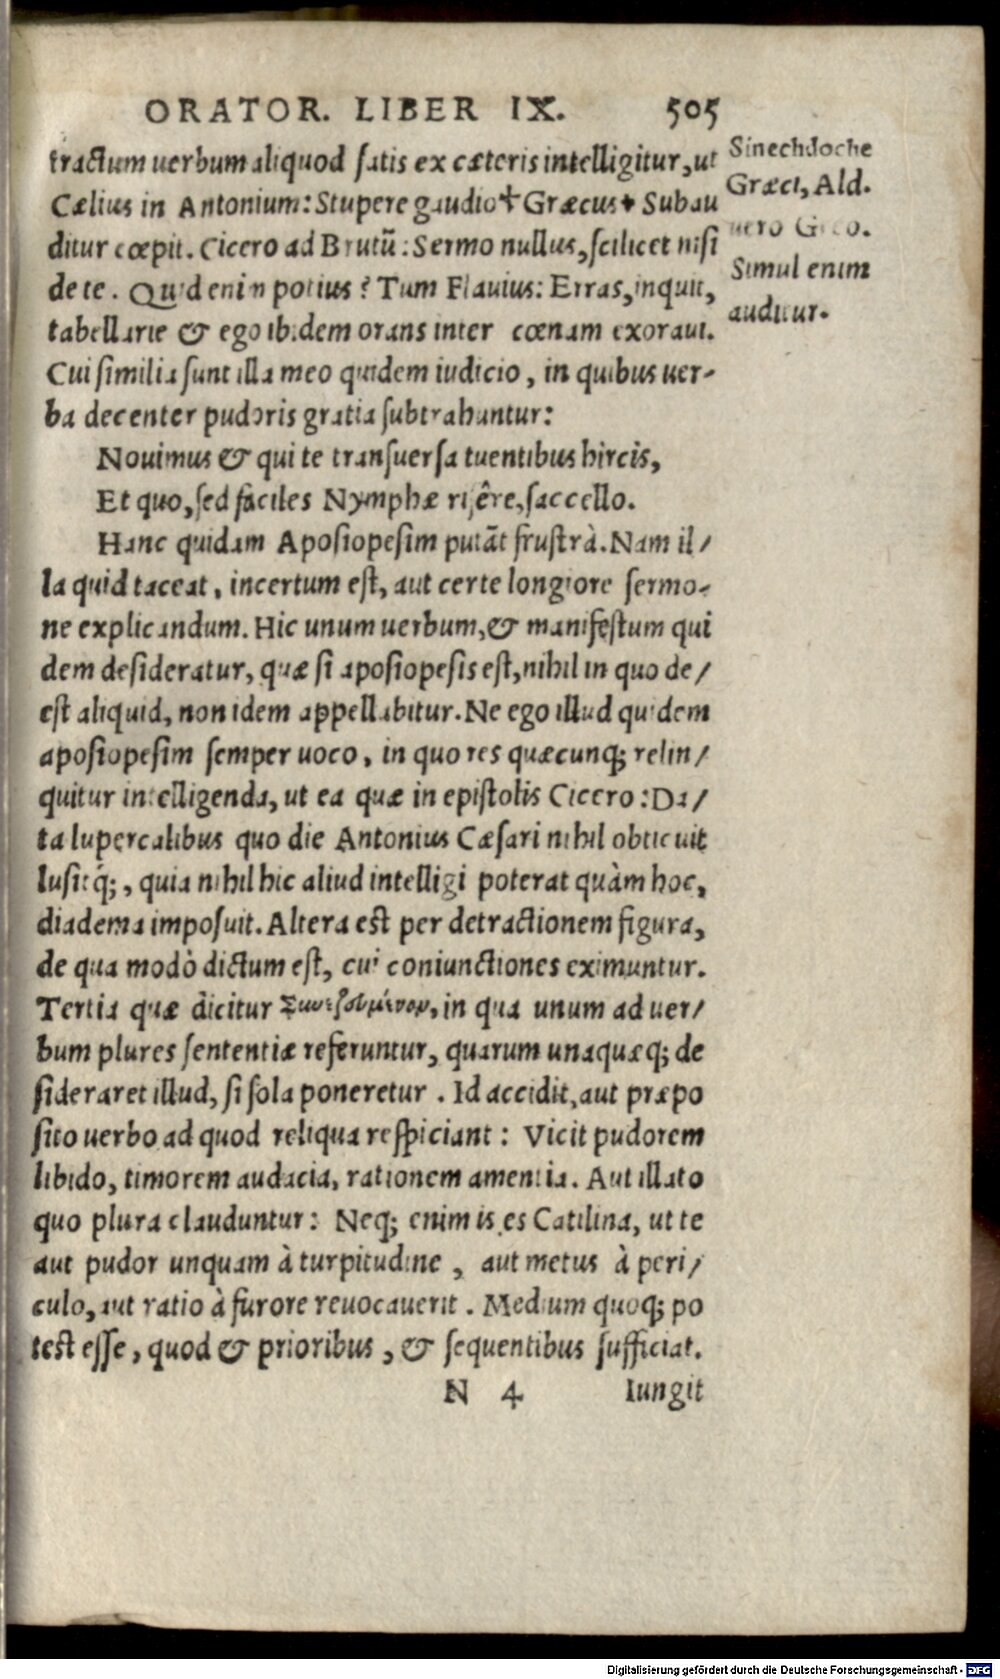 ORATOR. LIBER IX. 505
tractum uerbum aliquod satis ex cæteris intelligitur, ut
Cælius in Antonium: Stupere gaudio✝Græcus✦ Subau
ditur cœpit. Cicero ad Brutũ: Sermo nullus, scilicet nisi
de te. Quid enim potius? Tum Flauius: Erras, inquit,
tabellarie & ego ibidem orans inter cœnam exoraui.
Cui similia sunt illa meo quidem iudicio, in quibus uer-
ba decenter pudoris gratia subtrahuntur:
Nouimus & qui te transuersa tuentibus hircis,
Et quo, sed faciles Nymphæ risêre, saccello.
Hanc quidam Aposiopesim putãt frustrà. Nam il/
la quid taceat, incertum est, aut certe longiore sermo-
ne explicandum. Hic unum uerbum, & manifestum qui
dem desideratur, quæ si aposiopesis est, nihil in quo de/
est aliquid, non idem appellabitur. Ne ego illud quidem
aposiopesim semper uoco, in quo res quæcunq; relin/
quitur intelligenda, ut ea quæ in epistolis Cicero: Da/
ta lupercalibus quo die Antonius Cæsari nihil obticuit
lusitq́;, quia nihil hic aliud intelligi poterat quàm hoc,
diadema imposuit. Altera est per detractionem figura,
de qua modò dictum est, cui coniunctiones eximuntur.
Tertia quæ dicitur Συνεζευμένον, in qua unum ad uer/
bum plures sententiæ referuntur, quarum unaquæq; de
sideraret illud, si sola poneretur. Id accidit, aut præpo
sito uerbo ad quod reliqua respiciant: Vicit pudorem
libido, timorem audacia, rationem amentia. Aut illato
quo plura clauduntur: Neq; enim is es Catilina, ut te
aut pudor unquam à turpitudine, aut metus à peri/
culo, aut ratio à furore reuocauerit. Medium quoq; po
test esse, quod & prioribus, & sequentibus sufficiat.
N 4 Iungit
Sinechdoche
Græci, Ald.
uero Græco.
Simul enim
auditur.
Digitalisierung gefördert durch die Deutsche Forschungsgemeinschaft - DFG